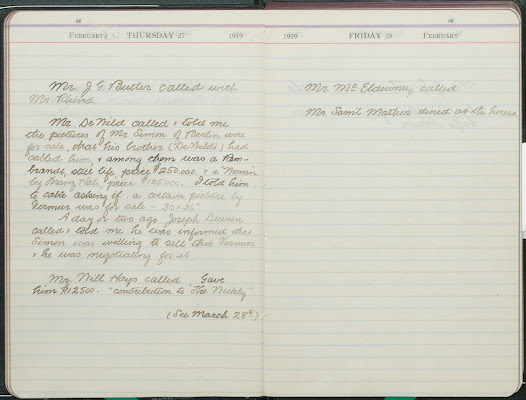 FEBRUARY THURSDAY 27 1919
Mr. J. G. Butler called with
Mr.
Mr. DeWild called & told me
the pictures of Mr Simon of Berlin were
for sale, that his brother (DeWilds) had
cabled him, & among them was a Rem-
brandt, still life, price $250.000. & a "Woman"
by Franz Hals, price $125.000. I told him
to cable asking if a certain picture by
Vermeer was for sale - 30 x 26"
A day or two ago Joseph Duveen
called & told me he was informed that
Simon was willing to sell this Vermeer
& he was negotiating for it
Mr. Will Hays called Gave
him $12500. "contribution to "The Weekly"
(See March 28th)
1919 FRIDAY 28 FEBRUARY
Mr. McEldowney called
Mr. Saml Mather dined at the house